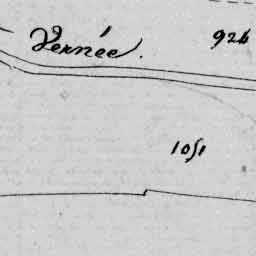 Vernée.
926
1051